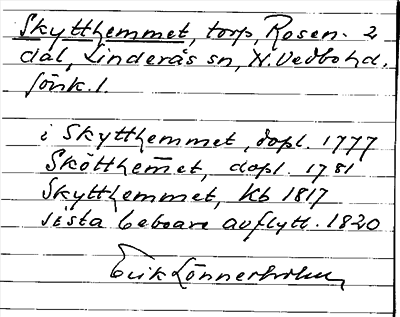 Skytthemmet, torp, Rosen- 2
dal, Linderås sn, N. Vedbo hd.
Jönk. l.
i Skytthemmet, dopl. 1777
Skötthem̄et, dopl. 1781
Skytthemmet, Kb 1817
sista beboare avflytt. 1820
Erik Lönnerholm